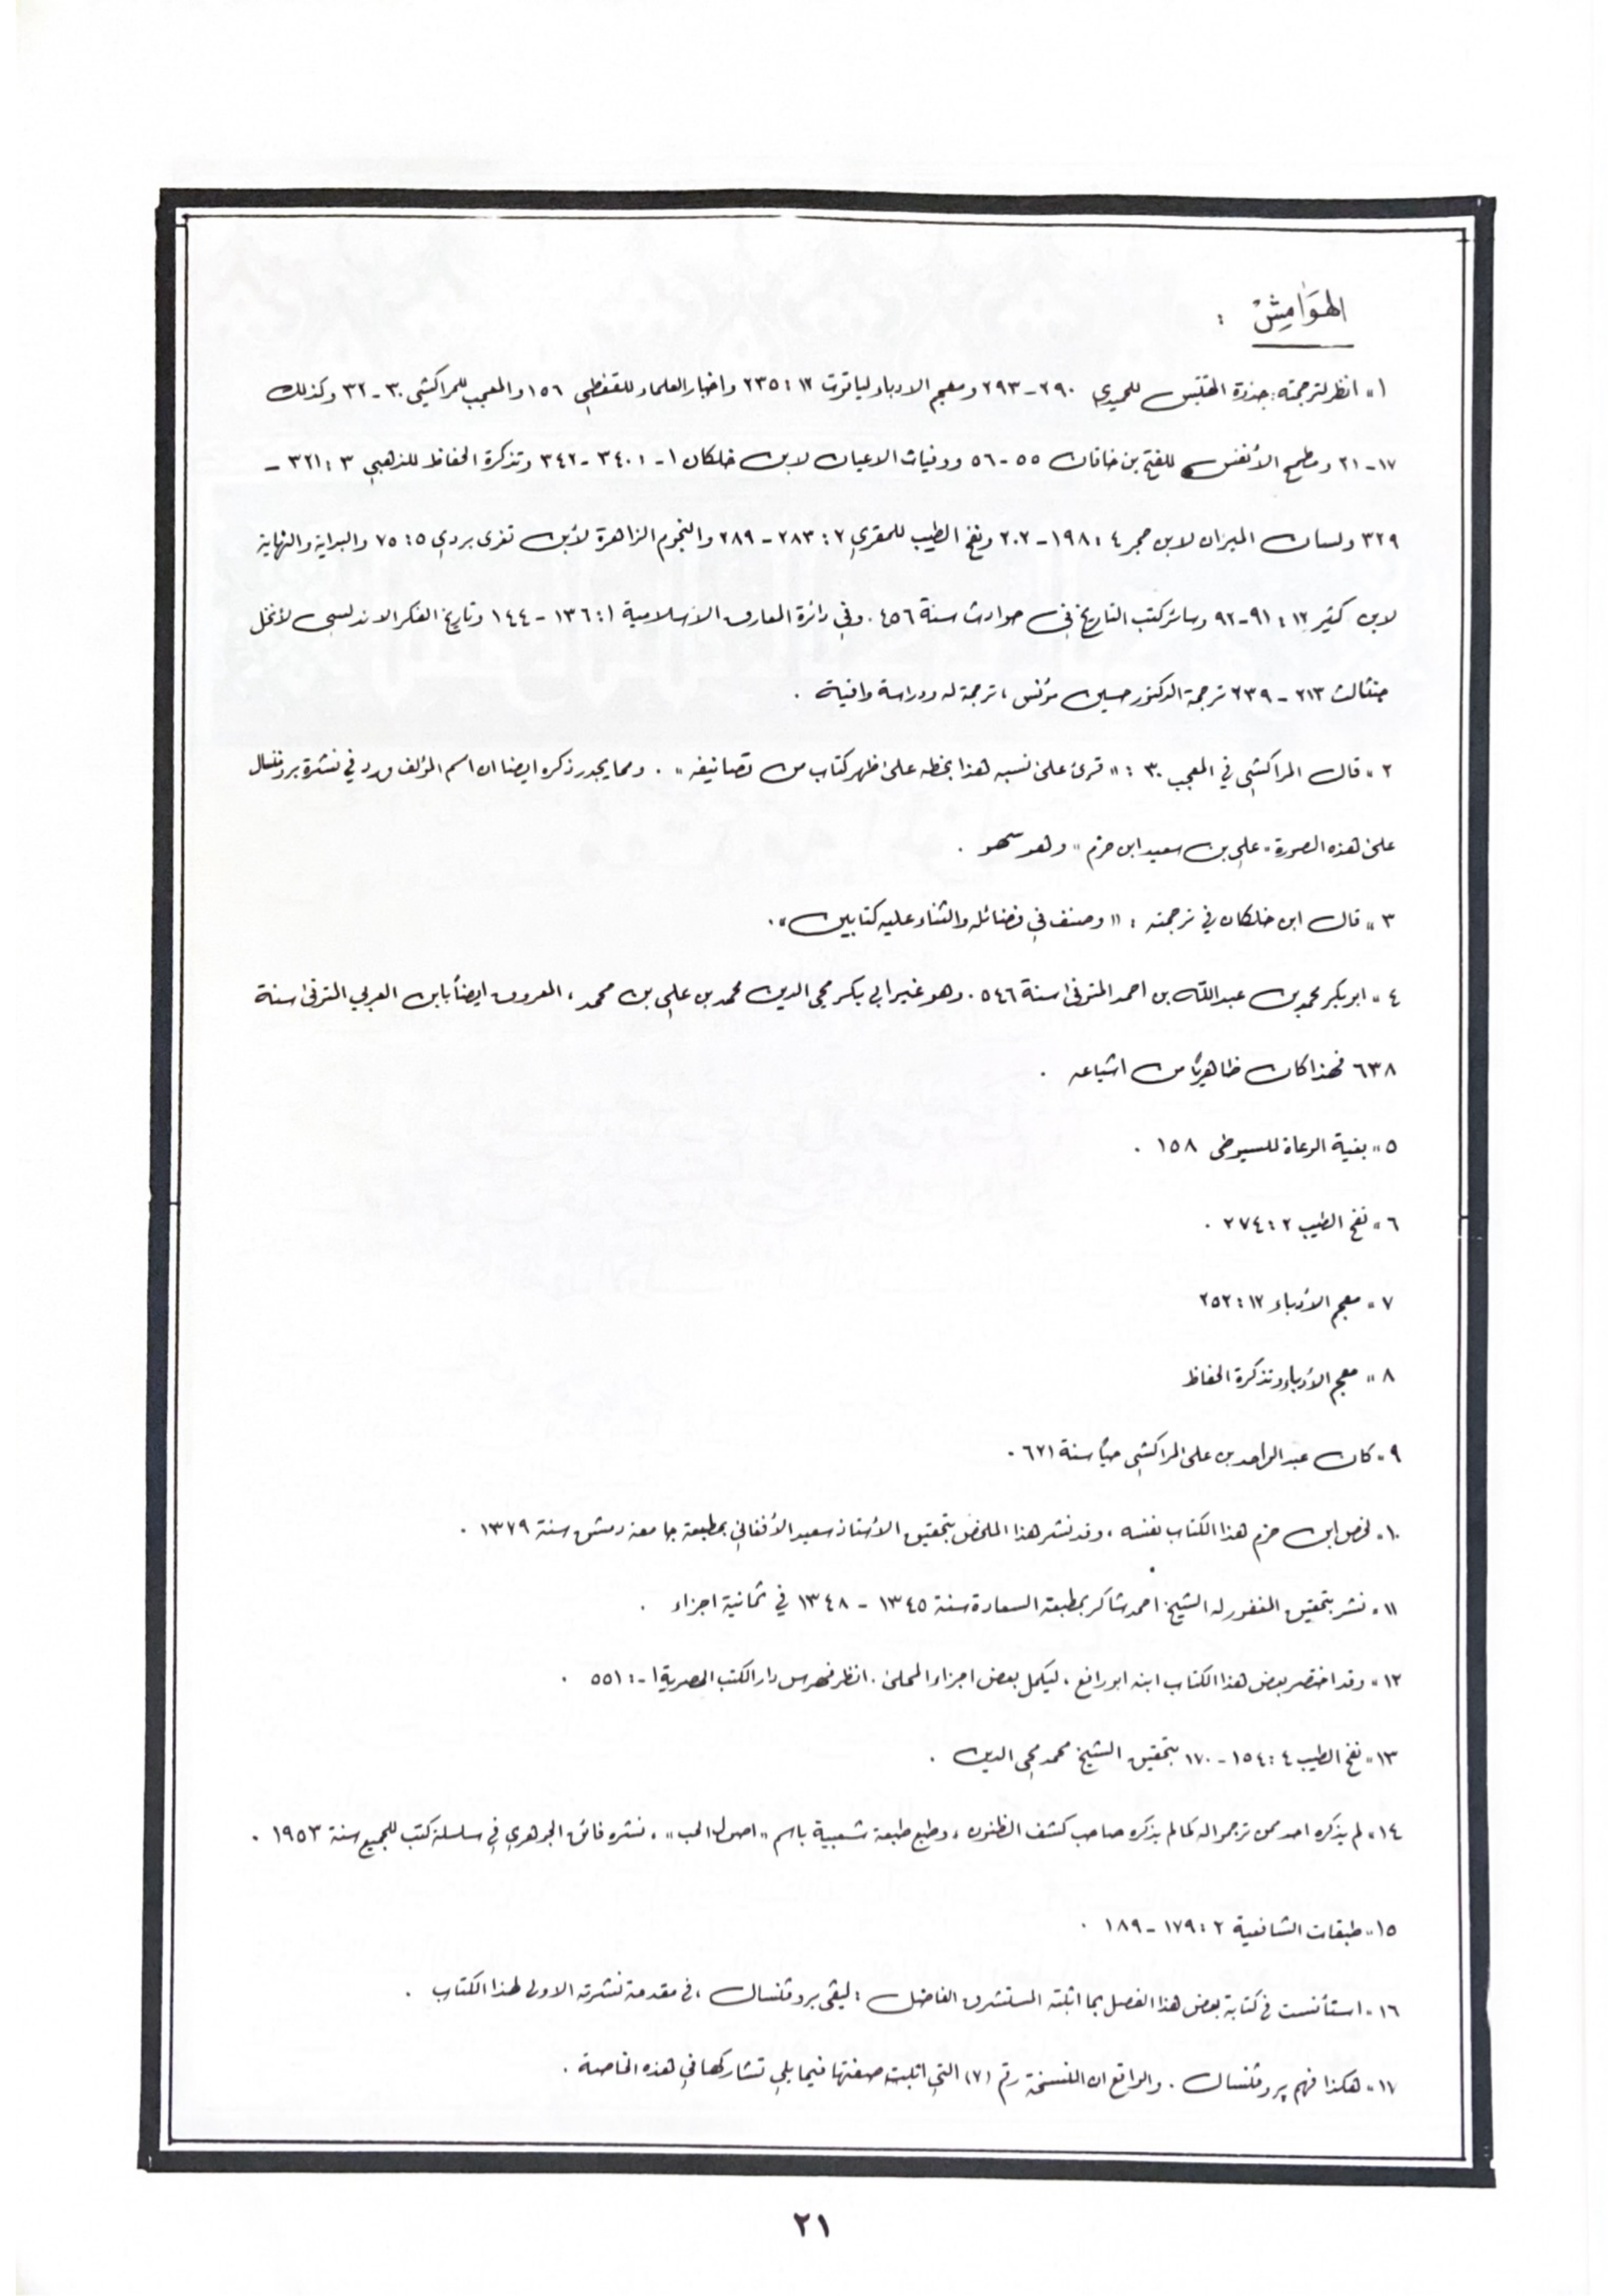 الهَوَامِشْ :
١» انظر لترجمته: جذوة المقتبس للحميدي ٢٩٠ - ٢٩٣ ومعجم الادباء لياقوت ١٢ : ٢٣٥ واخبار العلماء للقفطي ١٥٦ والمعجب للمراكشي ٣٠ - ٣٢ وكذلك
١٧ - ٢١ ومطمح الأنفس للفتح بن خاقان ٥٥ - ٥٦ ووفيات الاعيان لابن خلكان ١ - ٣٤٠١ - ٣٤٢ وتذكرة الحفاظ للذهبي ٣ : ٣٢١ -
٣٢٩ ولسان الميزان لابن حجر ٤ : ١٩٨ - ٢٠٢ ونفح الطيب للمقري ٢ : ٢٨٣ - ٢٨٩ والنجوم الزاهرة لأبن تغرى بردي ٥ : ٧٥ والبداية والنهاية
لابن كثير ١٢ : ٩١ - ٩٢ وسائر كتب التاريخ في حوادث سنة ٤٥٦ . وفي دائرة المعارف الاسلامية ١ : ١٣٦ - ١٤٤ وتاريخ الفكر الاندلسى لأنخل
جنثالث ٢١٣ - ٢٣٩ ترجمة الدكتور حسين مؤنس ، ترجمة له ودراسة وافية .
٢» قال المراكشي في المعجب ٣٠ : « قرئ على نسبه هذا بخطه على ظهر كتاب من تصانيفه » . ومما يجدر ذكره ايضا ان اسم المؤلف ورد في نشرة بروفنسال
على هذه الصورة « علي بن سعيد ابن حزم » وهو سهو .
٣» قال ابن خلكان في ترجمته : « وصنف في فضائله والثناء عليه كتابين » .
٤» ابو بكر محمد بن عبد الله بن احمد المتوفى سنة ٥٤٦ . وهو غير ابي بكر محي الدين محمد بن علي بن محمد ، المعروف ايضاً بابن العربي المتوفى سنة
٦٣٨ فهذا كان ظاهرياً من اشياعه .
٥» بغية الوعاة للسيوطى ١٥٨ .
٦» نفح الطيب ٢ : ٢٧٤ .
٧» معجم الأدباء ١٢ : ٢٥٢
٨» معجم الأدباء وتذكرة الحفاظ
٩» كان عبد الواحد بن على المراكشي حياً سنة ٦٢١ .
١٠» لخص ابن حزم هذا الكتاب نفسه ، وقد نشر هذا الملخص بتحقيق الأستاذ سعيد الأفغاني بمطبعة جامعة دمشق سنة ١٣٧٩ .
١١» نشر بتحقيق المغفور له الشيخ احمد شاكر بمطبعة السعادة سنة ١٣٤٥ - ١٣٤٨ في ثمانية اجزاء .
١٢» وقد اختصر بعض هذا الكتاب ابنه ابو رافع ، ليكمل بعض اجزاء المحلى . انظر فهرس دار الكتب المصرية ١ - : ٥٥١ .
١٣» نفح الطيب ٤ : ١٥٤ - ١٧٠ بتحقيق الشيخ محمد محي الدين .
١٤» لم يذكره احد ممن ترجموا له كما لم يذكره صاحب كشف الظنون ، وطبع طبعة شعبية باسم « اصول الحب » ، نشره فائق الجوهري في سلسلة كتب للجميع سنة ١٩٥٣ .
١٥» طبقات الشافعية ٢ : ١٧٩ - ١٨٩ .
١٦» استأنست في كتابة بعض هذا الفصل بما اثبته المستشرق الفاضل : ليفى بروفنسال ، في مقدمة نشرته الاولى لهذا الكتاب .
١٧» هكذا فهم پروفنسال . والواقع ان النسخة رقم (٧) التي اثبت صفتها فيما يلي تشاركها في هذه الخاصة .
٢١